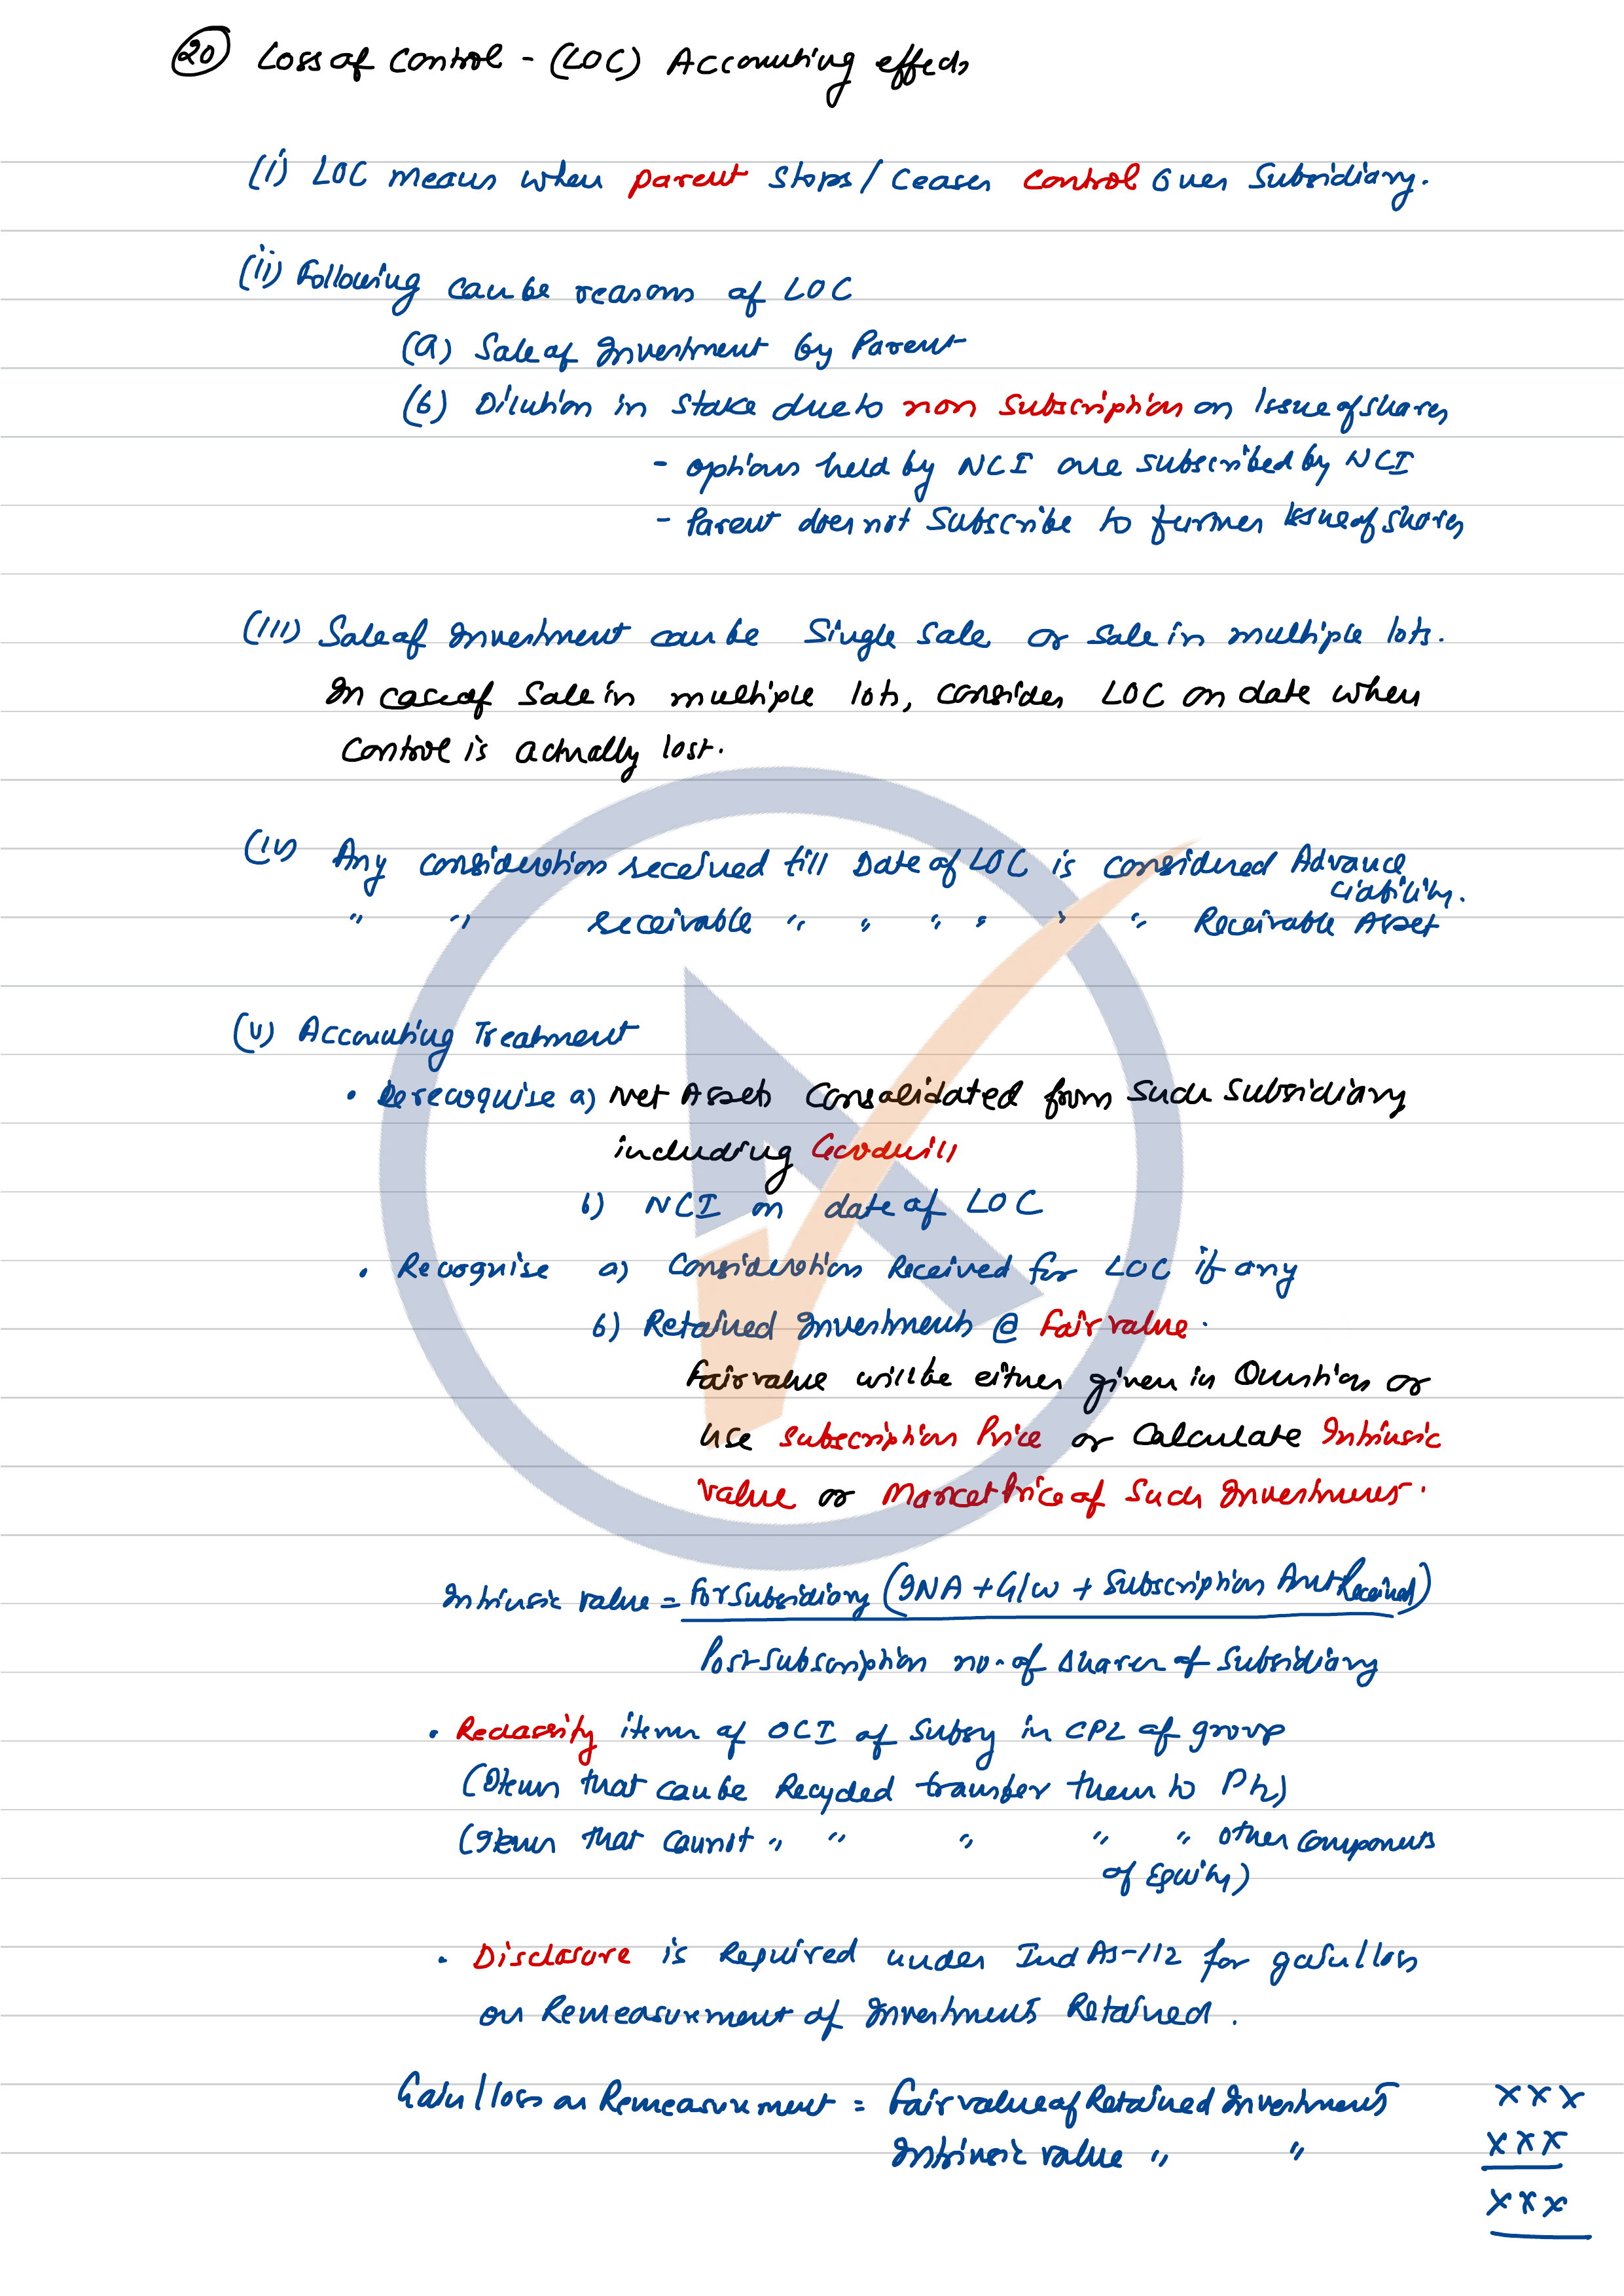 (20) Loss of Control - (LOC) Accounting effects
(i) LOC means when parent stops/ceases control over Subsidiary.
(ii) Following can be reasons of LOC
(a) Sale of Investment by Parent
(b) Dilution in stake due to non subscription on Issue of shares
- options held by NCI are subscribed by NCI
- Parent does not Subscribe to further Issue of shares
(iii) Sale of Investment can be Single Sale or Sale in multiple lots.
In case of Sale in multiple lots, consider LOC on date when
Control is actually lost.
(iv) Any consideration received till Date of LOC is considered Advance
Liability.
" " receivable " " " " " " Receivable Asset
(v) Accounting Treatment
• Derecognise a) Net Assets Consolidated from such subsidiary
including Goodwill
b) NCI on date of LOC
• Recognise a) Consideration Received for LOC if any
b) Retained Investments @ Fair value.
Fair value will be either given in Question or
use Subscription Price or Calculate Intrinsic
value or Market Price of Such Investments.
Intrinsic value = For Subsidiary (INA + G/w + Subscription Amt Received)
Post subscription no. of shares of Subsidiary
• Reclassify items of OCI of Subsy in CPL of group
(Items that can be Recycled transfer them to P/L)
(Items that cannot " " " " " other Components
of Equity)
• Disclosure is Required under Ind AS-112 for gain/loss
on Remeasurement of Investments Retained.
Gain/loss on Remeasurement = Fair value of Retained Investments xxx
Intrinsic value " " xxx
xxx